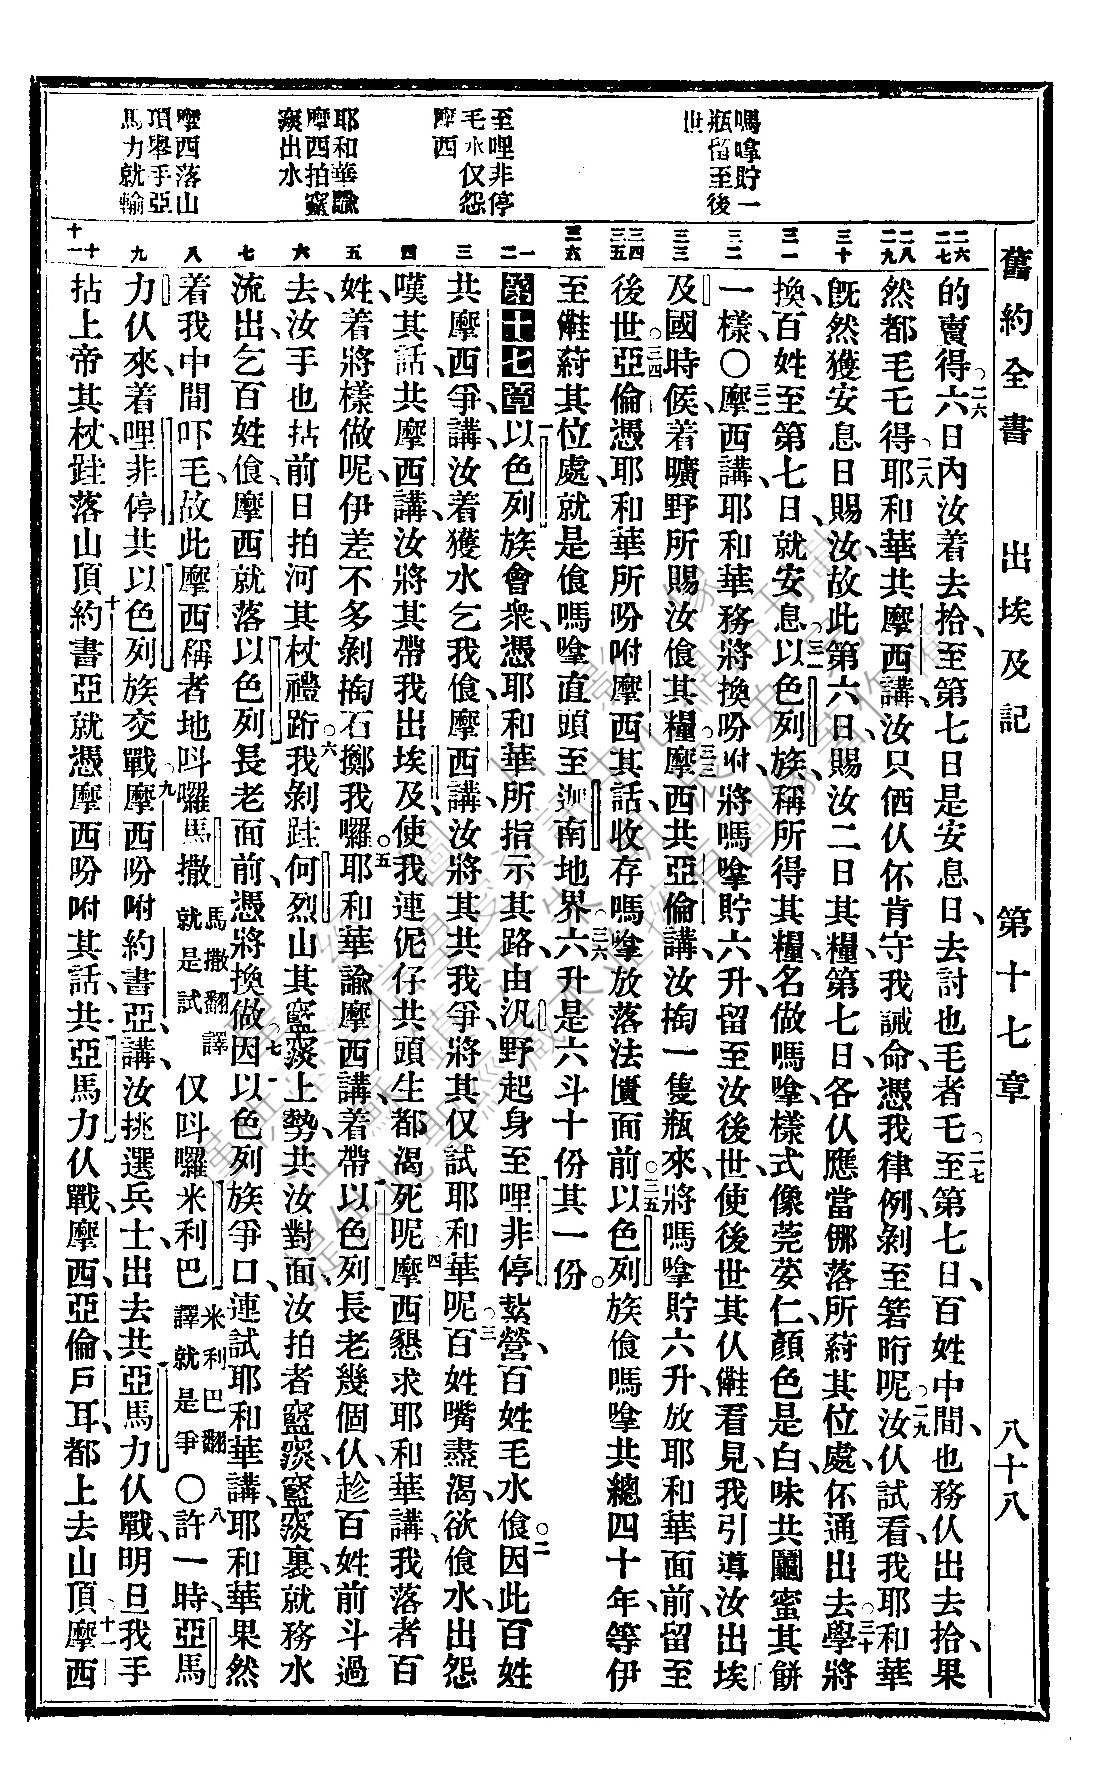 舊約全書 出埃及記 第十七章 八十八
嗎嗱貯一
瓶留至後
世
至哩非停
毛水仅怨
摩西
耶和華諭
摩西拍竂
出水
摩西落山
頂舉手亞
馬力就輸
的賣得六日內汝着去拾至第七日是安息日去討也毛者毛至第七日百姓中間也務仈出去拾果
然都毛毛得耶和華共摩西講汝只價仈伓肯守我誡命憑我律例剝至箬昕呢汝仈試看我耶和華
旣然獲安息日賜汝故此第六日賜汝二日其糧第七日各仈應當㑚落所蒔其位處伓通出去學將
換百姓至第七日就安息以色列族稱所得其糧名做嗎嗱樣式像莞荽仁顏色是白味共蜜其餅
一樣〇摩西講耶和華務將換吩咐將嗎嗱貯六升留至汝後世使後世其仈看見我引導汝出埃
及國時候着曠野所賜汝飡其糧摩西共亞倫講汝掏一隻瓶來將嗎嗱貯六升放耶和華面前留至
後世亞倫憑耶和華所吩咐摩西其話收存嗎嗱放落法匱面前以色列族飡嗎嗱共總四十年等伊
至蒔其位處就是飡嗎嗱直頭至迦南地界六升是六斗十份其一份
第十七章以色列族會衆憑耶和華所指示其路由汎野起身至哩非停紮營百姓毛水飡因此百姓
共摩西爭講汝着獲水乞我飡摩西講汝將其共我爭將其仅試耶和華呢百姓嘴盡渴欲飡水出怨
嘆其話共摩西講汝將其帶我出埃及使我連伲仔共頭生都渴死呢摩西懇求耶和華講我落者百
姓着將樣做呢伊差不多剝掏石擲我囉耶和華諭摩西講着帶以色列長老幾個仈趁百姓前斗過
去汝手也拈前日拍河其杖禮跴我剝跬何烈山其上勢共汝對面汝拍者裏就務水
流出乞百姓飡摩西就落以色列長老面前憑將換做因以色列族爭口連試耶和華講耶和華果然
着我中間吓毛故此摩西稱者地呌囉馬撒馬撒翻譯就是試仅呌囉米利巴米利巴翻譯就是爭〇許一時亞馬
力仈來着哩非停共以色列族交戰摩西吩咐約書亞講汝挑選兵士出去共亞馬力仈戰明旦我手
拈上帝其杖跬落山頂約書亞就憑摩西吩咐其話共亞馬力仈戰摩西亞倫戶耳都上去山頂摩西